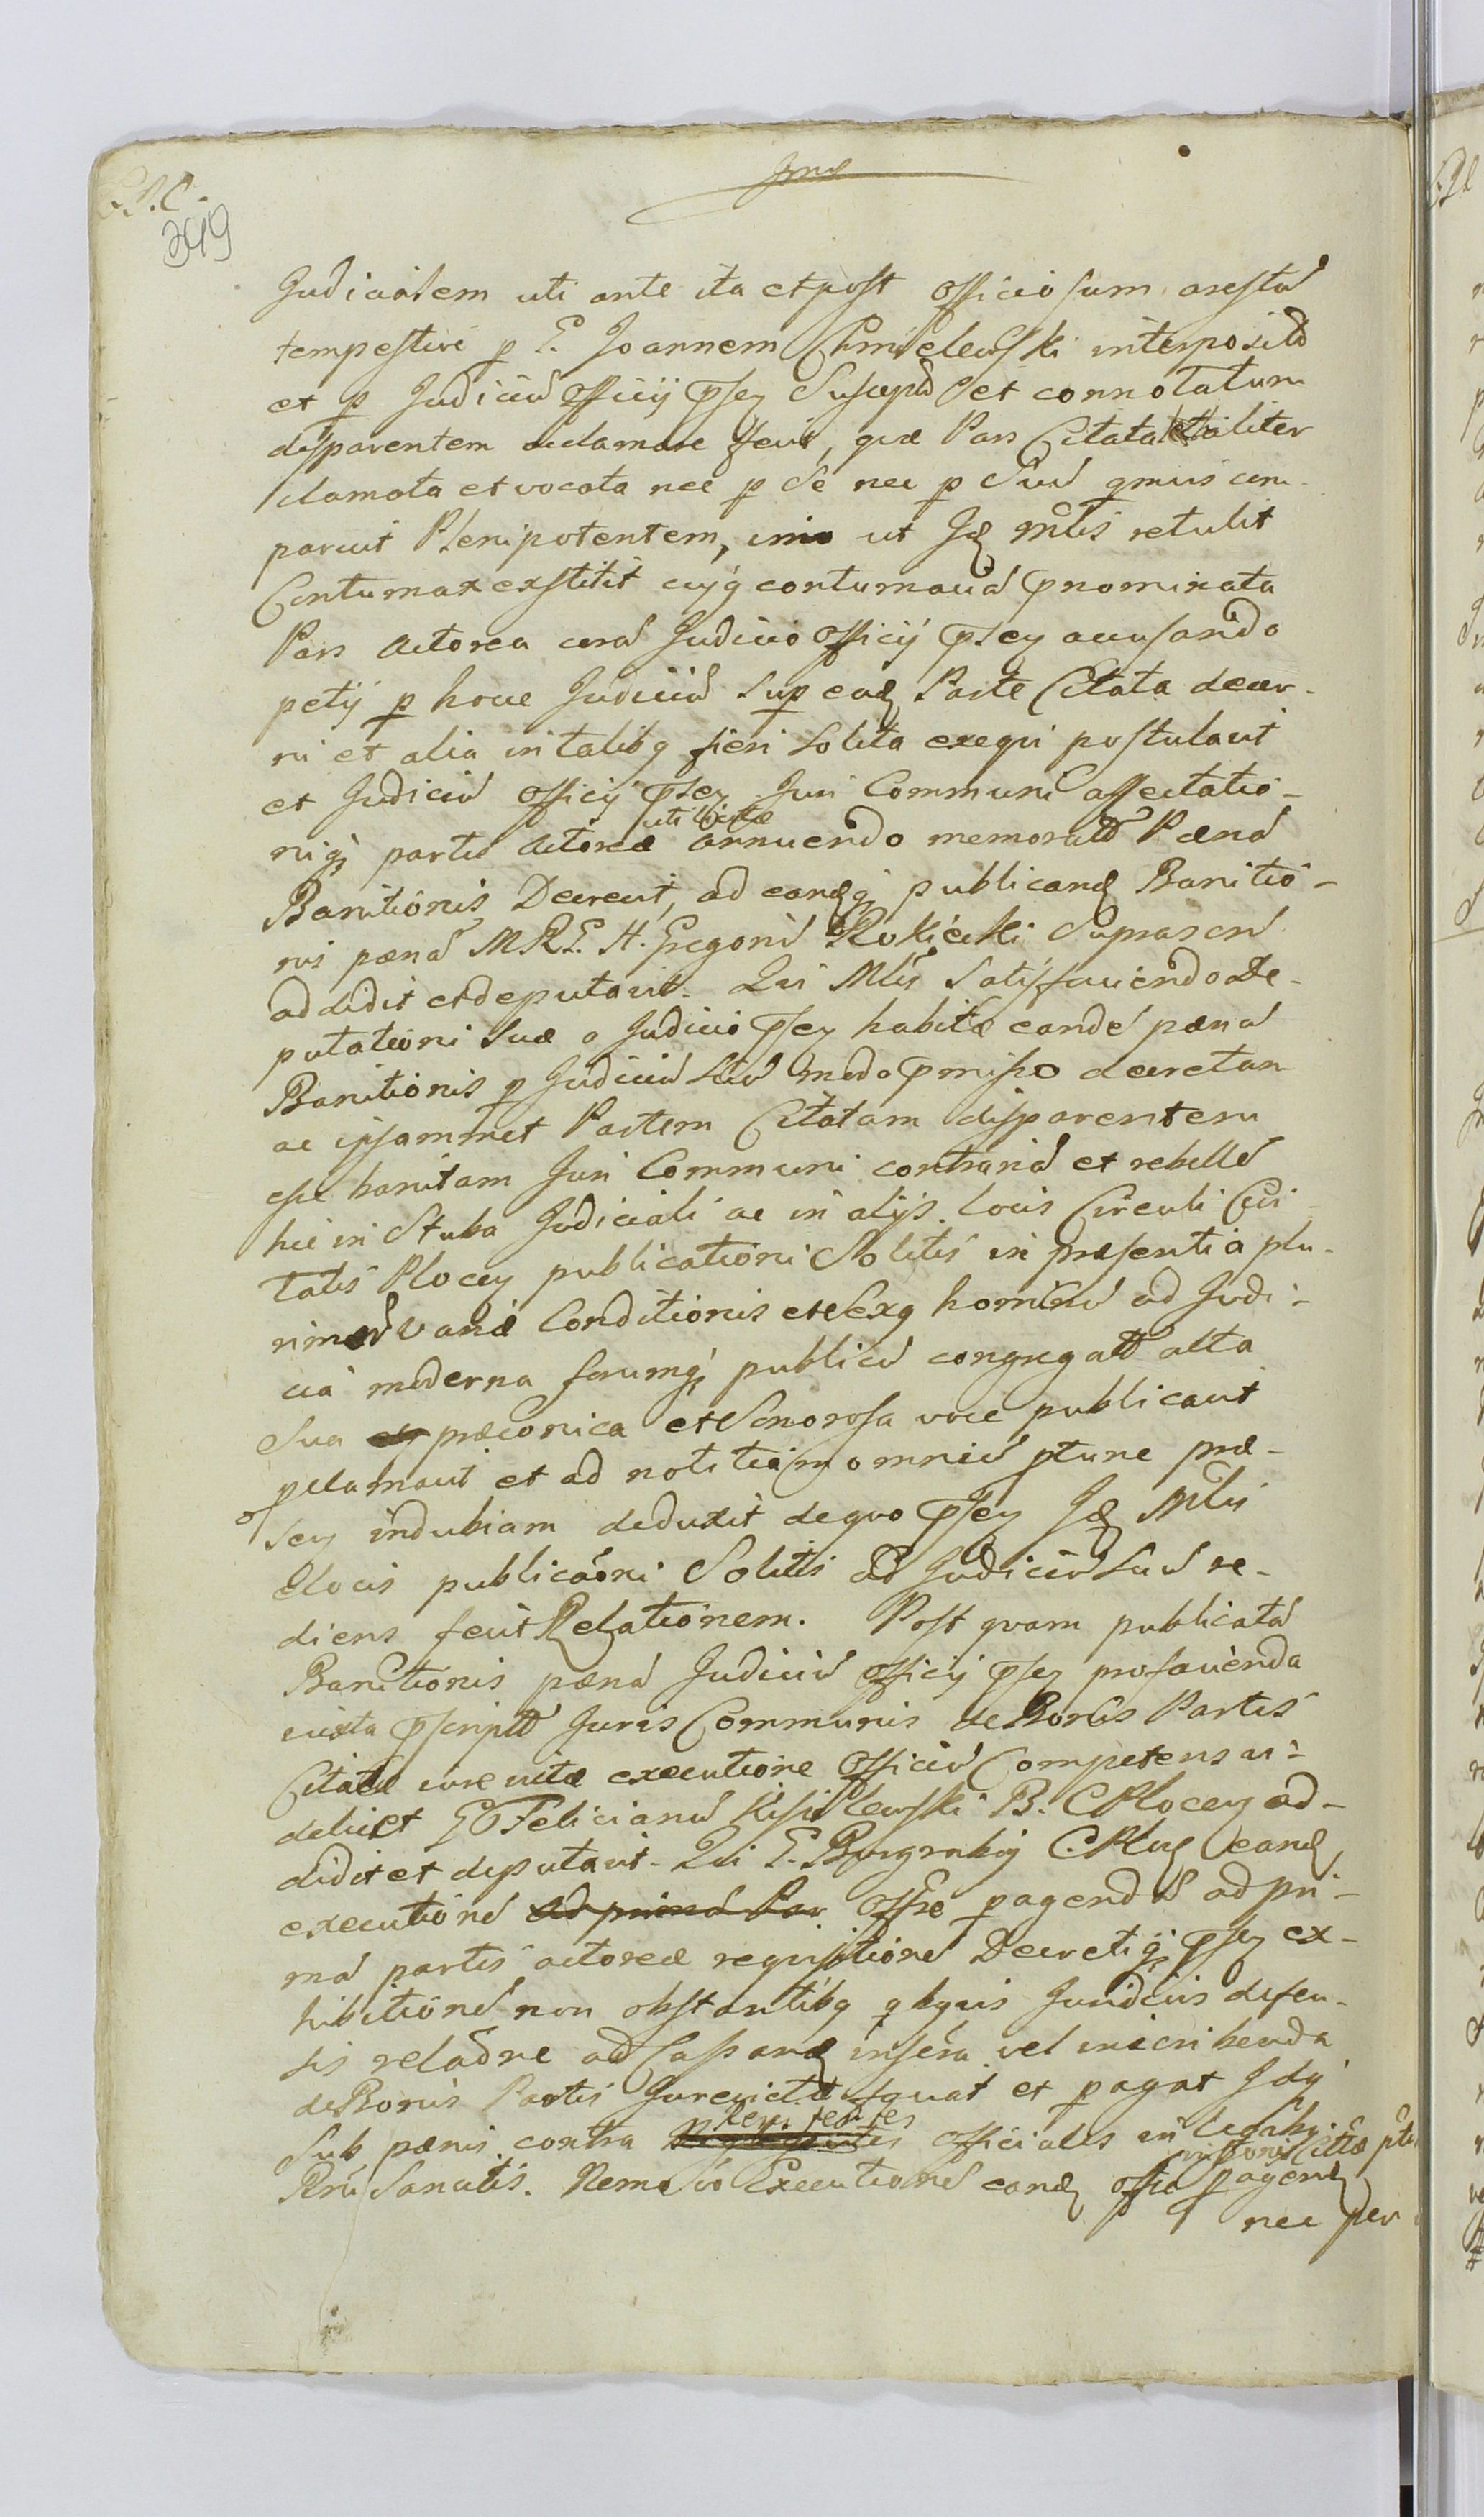 349
Judicialem uti ante ita et post officiosum arestū
tempestive p E. Joannem Chmielewski interposit̄
et p Judiciū Officij pn̄sey Suscept̄ et connotatum
disparentem acclamare fecit, quæ Pars Citata taliter
clamata et vocata nec p Se nec p Suū qmvis com-
paruit Plenipotentem, imo ut Jd Mtlis retulit
Contumax exstitit cujq contumaciā pnominata
Pars Actorea corā Judicio Officij pn̄sey accusando
petij p hoce Judiciū Sup eadē Parte Citata decer-
ni et alia in talibq fieri solita exequi postulavit
et Judiciū Officij pn̄sey Juri Communi affectatio-
niq partis Actoreæ annuendo memorat̄ Pænā
Banitionis Decrevit, ad eandq publicand Banitio-
nis pænā MRE. H. Gregoriū Rokicki Suprascri
addidit et deputavit. Qui Mtlis Satisfaciendo De-
putationi Suæ a Judicio pn̄sey habitæ eandē pænā
Banitionis p Judiciū Suū modo pmisso decretam
ac ipsammet Partem Citatam disparentem
esse banitam Juri Communi contrariā et rebellē
hic in Stuba Judiciali ac in alijs locis Circuli Civi-
tatis Plocey publicationi Solitis in præsentia plu-
rimorū variæ Conditionis et Sexq hominū ad Judi-
cia moderna forumq publicū congregat̄ alta
Sua præconica et Sonorosa voce publicavit
pclamavit et ad notitiam omniū ptunc præ-
sey indubiam deduxit de quo pn̄sey Jd Mtlis
e locis publicāoni Solitis ad Judiciū Suū re-
diens fecit Relationem. Post quam publicatā
Banitionis pænā Judiciū Officij pn̄sey pro facienda
iuxta pscript̄ Juris Communis de Bonis Partis
Citatæ iure victæ executione Officiū Competens vi-
delicet E Felicianū Kisielewski B. C Plocey ad-
didit et deputavit. Qui E. Burgrabij C. Plocy eand
executionē ad primā Par Offse pagend̄ ad pri-
mā partis actoreæ requisitionē Decretiq pn̄sey ex-
hibitionē non obstantibq qbqvis Juridicis defen-
sis relāone ad Cassand insera vel inscribenda
de Bonis Partis Jure victæ fquat et pagat Idq
Sub pænis contra officiales in
Rni Sancitis. Nemo vo Executionē eand offse pagend
nec per